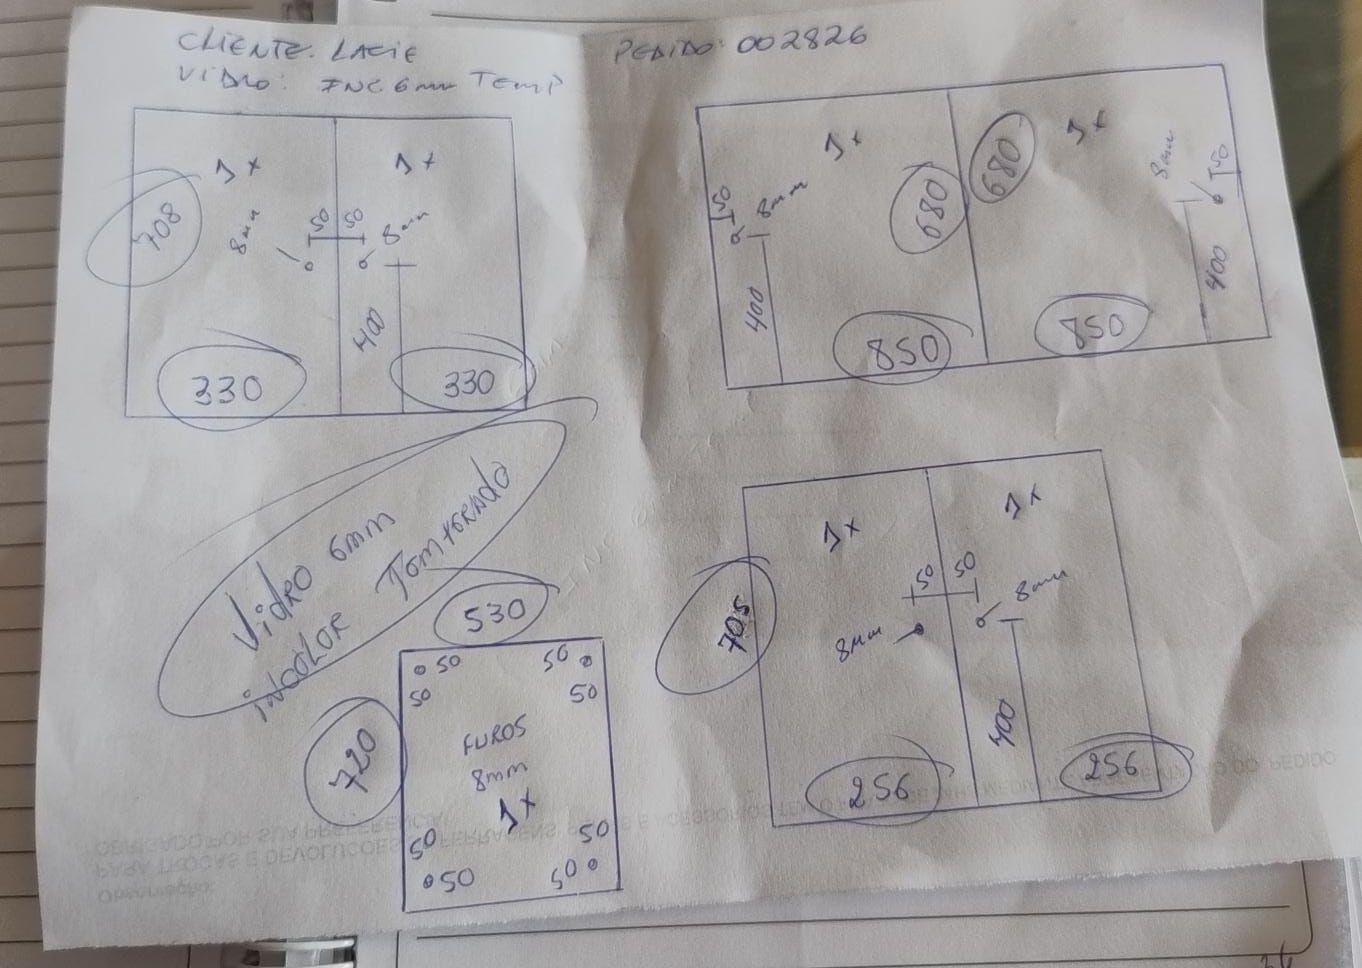 CLIENTE: LACIE
PEDIDO: 002826
VIDRO: INC 6mm TEMP
1x
1x
708
8mm
50
50
8mm
400
330
330
1x
1x
680
680
50
8mm
8mm
50
400
400
850
850
Vidro 6mm
incolor Temperado
530
720
50
50
50
50
FUROS
8mm
1x
50
50
50
50
1x
1x
705
50
50
8mm
8mm
400
256
256
OBRIGADO POR SUA PREFERENCIA!
PARA TROCAS E DEVOLUCOES
FERRAGENS
E ACESSORIOS
DO PEDIDO
Observação: